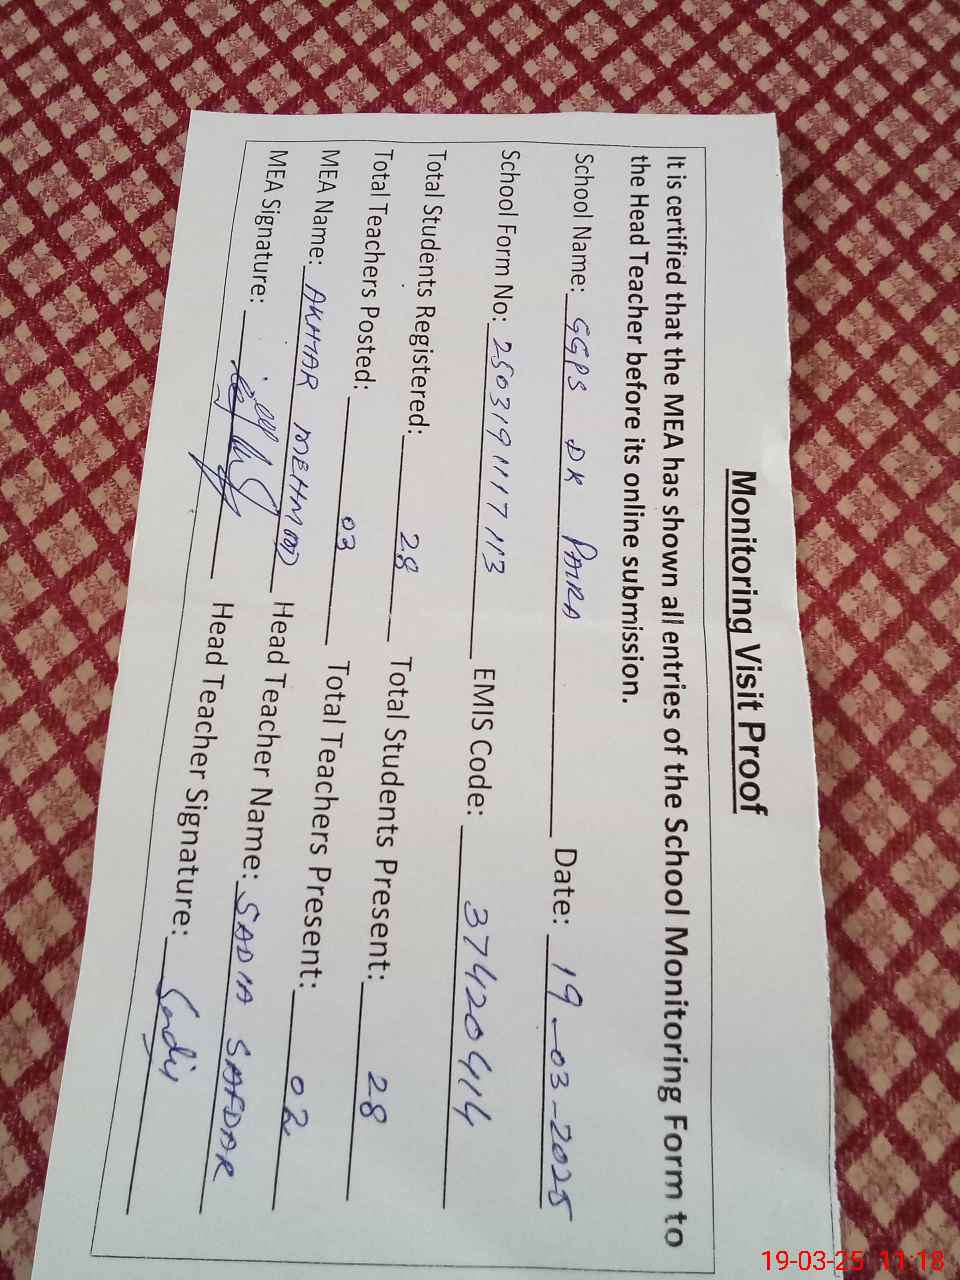 Monitoring Visit Proof
It is certified that the MEA has shown all entries of the School Monitoring Form to
the Head Teacher before its online submission.
School Name: GGPS DK PAIRA Date: 19-03-2025
School Form No: 2503191117113 EMIS Code: 37420414
Total Students Registered: 28 Total Students Present: 28
Total Teachers Posted: 03 Total Teachers Present: 02
MEA Name: AKHTAR MEHMOOD Head Teacher Name: SADIA SAFDAR
MEA Signature: Head Teacher Signature: Sadia
19-03-25 11:18